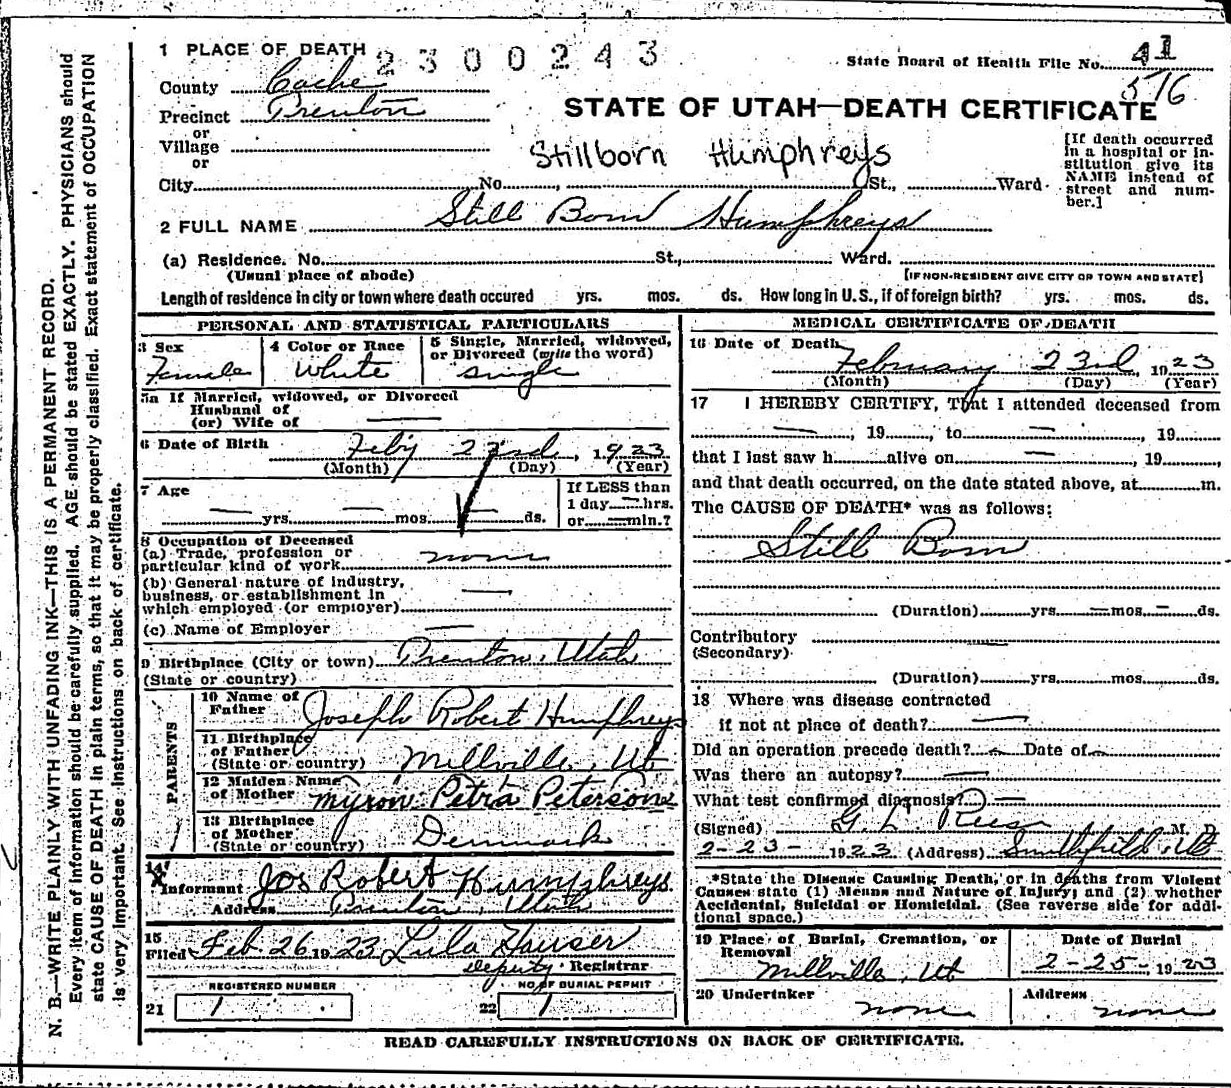 1 PLACE OF DEATH 2300243
State Board of Health File No. 41
576
County Cache
Precinct Trenton
STATE OF UTAH—DEATH CERTIFICATE
or
Village
or
Stillborn Humphreys
[If death occurred in a hospital or institution give its NAME instead of street and number.]
City No. , St., Ward
2 FULL NAME Still Born Humphreys
(a) Residence. No. St., Ward.
(Usual place of abode) [IF NON-RESIDENT GIVE CITY OR TOWN AND STATE]
Length of residence in city or town where death occured yrs. mos. ds. How long in U. S., if of foreign birth? yrs. mos. ds.
PERSONAL AND STATISTICAL PARTICULARS
3 Sex
Female
4 Color or Race
White
5 Single, Married, widowed, or Divorced (write the word)
single
5a If Married, widowed, or Divorced
Husband of
(or) Wife of —
6 Date of Birth Feb'y 23rd, 1923
(Month) (Day) (Year)
7 Age
— yrs. — mos. — ds.
If LESS than
1 day — hrs.
or — min.?
8 Occupation of Deceased
(a) Trade, profession or
particular kind of work none
(b) General nature of industry,
business, or establishment in
which employed (or employer) —
(c) Name of Employer —
9 Birthplace (City or town) Trenton, Utah
(State or country)
PARENTS
10 Name of
Father Joseph Robert Humphreys
11 Birthplace
of Father
(State or country) Millville, Ut
12 Maiden Name
of Mother Myron Petra Petersone
13 Birthplace
of Mother
(State or country) Denmark
14
Informant Jos Robert Humphreys
Address Trenton, Utah
15
Filed Feb. 26 1923 Lula Hauser
Deputy Registrar
REGISTERED NUMBER
21 1
NO. OF BURIAL PERMIT
22 1
MEDICAL CERTIFICATE OF DEATH
16 Date of Death
February 23rd, 1923
(Month) (Day) (Year)
17 I HEREBY CERTIFY, That I attended deceased from
— , 19 , to — , 19
that I last saw h alive on — , 19 ,
and that death occurred, on the date stated above, at m.
The CAUSE OF DEATH* was as follows:
Still Born
(Duration) yrs. — mos. — ds.
Contributory
(Secondary)
(Duration) yrs. mos. ds.
18 Where was disease contracted
if not at place of death? —
Did an operation precede death? — Date of —
Was there an autopsy? —
What test confirmed diagnosis? —
(Signed) G. L. Rees M. D.
2-23- 1923 (Address) Smithfield, Ut
*State the Disease Causing Death, or in deaths from Violent
Causes state (1) Means and Nature of Injury; and (2) whether
Accidental, Suicidal or Homicidal. (See reverse side for addi-
tional space.)
19 Place of Burial, Cremation, or
Removal
Millville, Ut
Date of Burial
2-25- 1923
20 Undertaker
none
Address
none
READ CAREFULLY INSTRUCTIONS ON BACK OF CERTIFICATE.
N. B.—WRITE PLAINLY WITH UNFADING INK—THIS IS A PERMANENT RECORD.
Every item of information should be carefully supplied. AGE should be stated EXACTLY. PHYSICIANS should
state CAUSE OF DEATH in plain terms, so that it may be properly classified. Exact statement of OCCUPATION
is very important. See instructions on back of certificate.